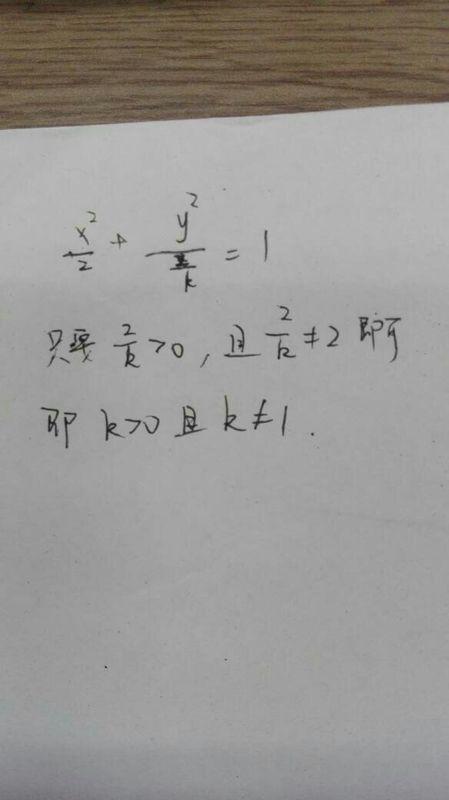 x²/2 + y²/(2/k) = 1
只要 2/k >0, 且 2/k ≠2 即可
即 k>0 且 k≠1.